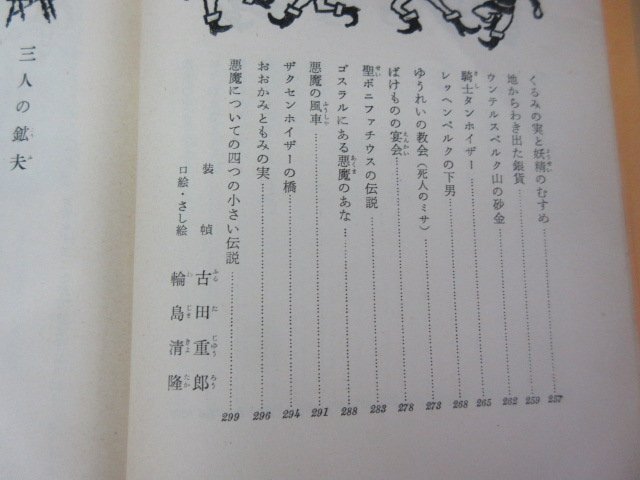 くるみの実と妖精のむすめ 257
地からわき出た銀貨 259
ウンテルスベルク山の砂金 262
騎士タンホイザー 265
レッヘンベルクの下男 268
ゆうれいの教会(死人のミサ) 273
ばけものの宴会 278
聖ボニファチウスの伝説 283
ゴスラルにある悪魔のあな 288
悪魔の風車 291
ザクセンホイザーの橋 294
おおかみともみの実 296
悪魔についての四つの小さい伝説 299
装幀 古田重郎
口絵・さし絵 輪島清隆
三人の鉱夫